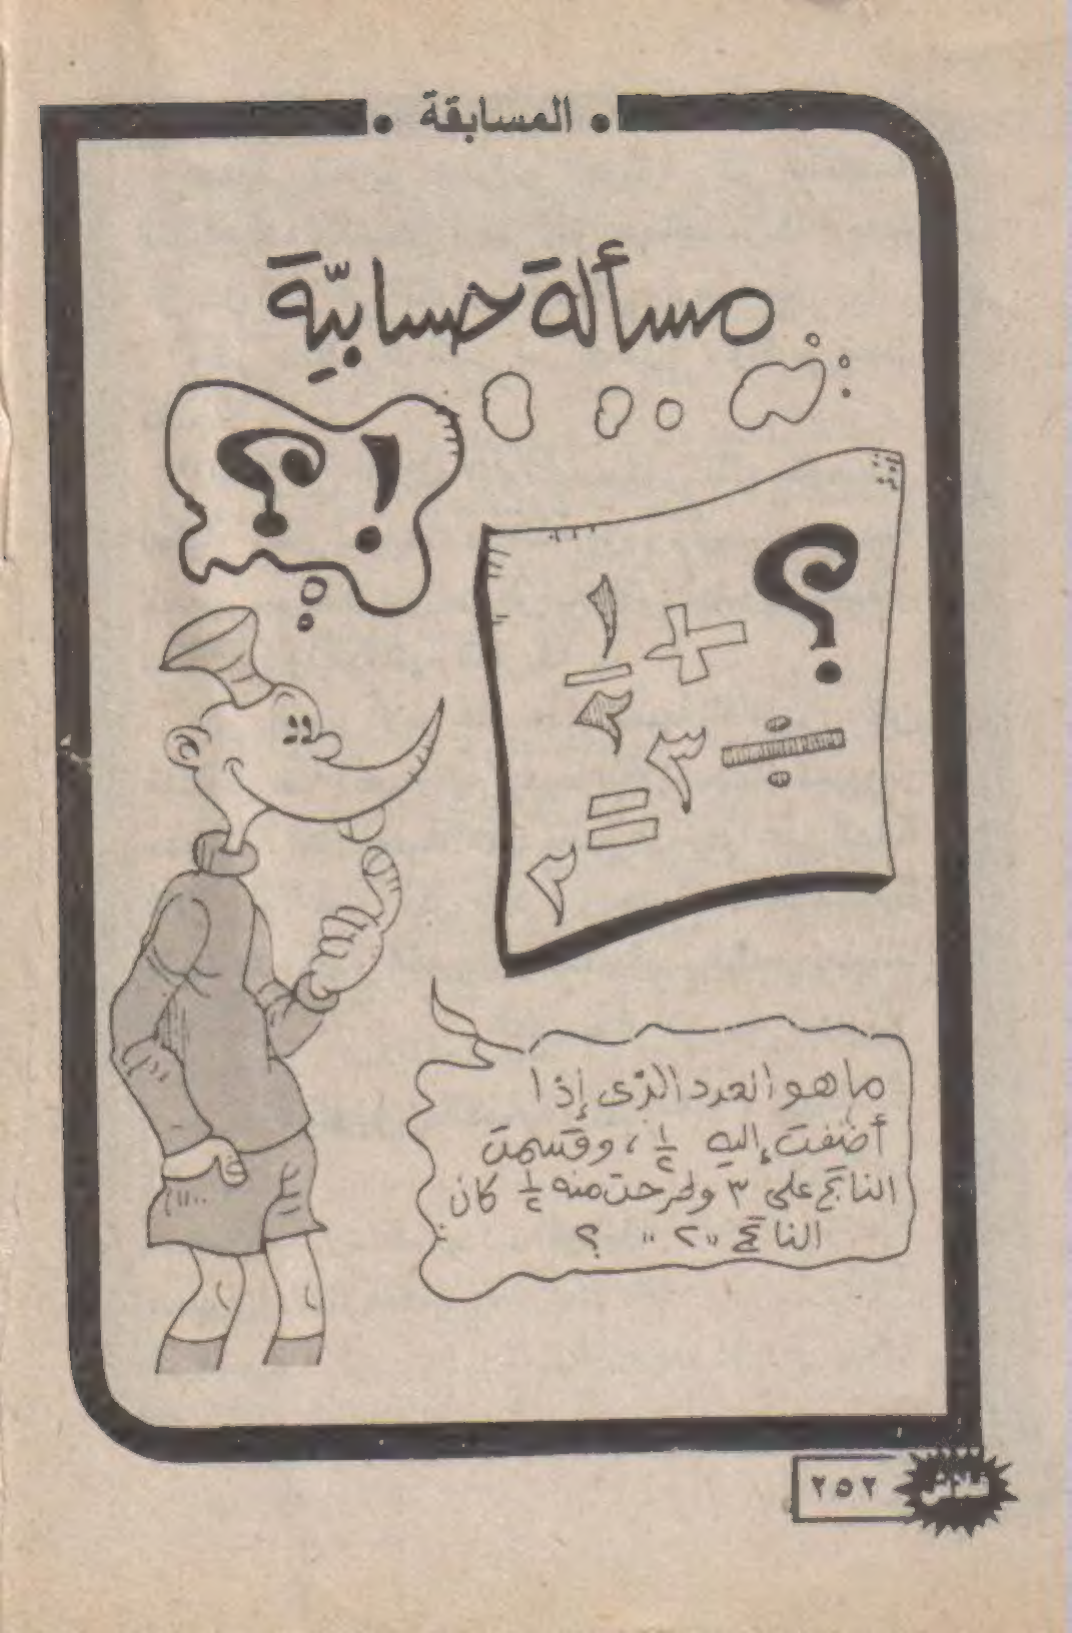 • المسابقة •
مسألة حسابيّة
! ؟
؟ + ١/٢
÷ ٣ = ٢
ما هو العدد الذى إذا
أضفت إليه ١/٢ ، وقسمت
الناتج على ٣ وطرحت منه ١/٢ كان
الناتج "٢" ؟
فلاش
٢٥٢